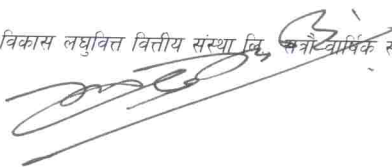 विकास लघुवित्त वित्तीय संस्था लि. सत्रौ वार्षिक